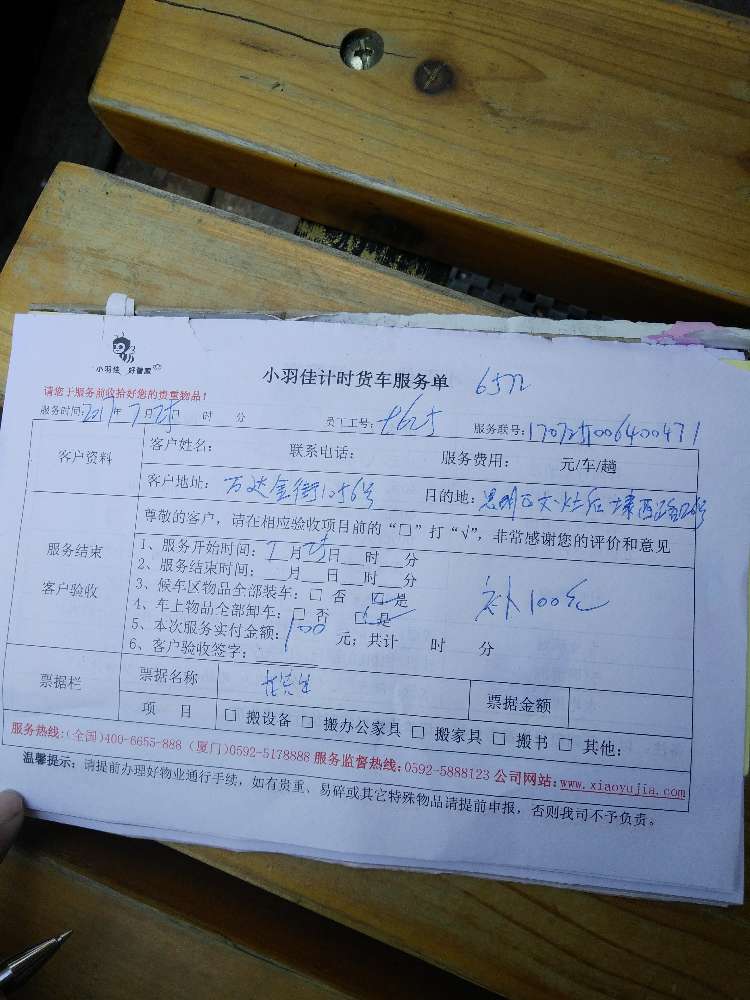 小羽佳 好管家
小羽佳计时货车服务单
请您于服务前收拾好您的贵重物品！
服务时间：2017年7月25日 时 分 员工工号： 服务联号：
客户资料 客户姓名： 联系电话： 服务费用： 元/车/趟
客户地址：万达金街1256号 目的地：思明区
尊敬的客户，请在相应验收项目前的“□”打“√”，非常感谢您的评价和意见
服务结束
客户验收
1、服务开始时间：7月25日__时__分
2、服务结束时间：__月__日__时__分
3、候车区物品全部装车：□ 否 ☑ 是
4、车上物品全部卸车：□ 否 ☑ 是
补100元
5、本次服务实付金额：100元；共计 时 分
6、客户验收签字：
票据栏 票据名称 票据金额
项 目 □ 搬设备 □ 搬办公家具 □ 搬家具 □ 搬书 □ 其他：
服务热线：(全国)400-6655-888 (厦门)0592-5178888 服务监督热线：0592-5888123 公司网站：www.xiaoyujia.com
温馨提示：请提前办理好物业通行手续，如有贵重、易碎或其它特殊物品请提前申报，否则我司不予负责。